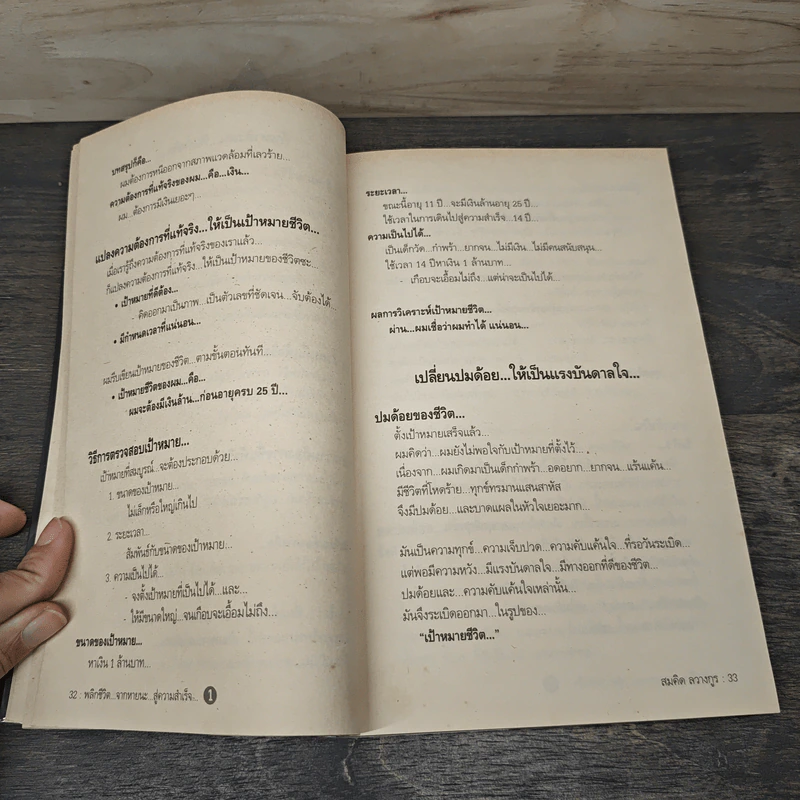 บทสรุปก็คือ...
ผมต้องการหนีออกจากสภาพแวดล้อมที่เลวร้าย...
ความต้องการที่แท้จริงของผม...คือ...เงิน...
ผม...ต้องการมีเงินเยอะๆ...
แปลงความต้องการที่แท้จริง...ให้เป็นเป้าหมายชีวิต...
เมื่อเรารู้ถึงความต้องการที่แท้จริงของเราแล้ว...
ก็แปลงความต้องการที่แท้จริง...ให้เป็นเป้าหมายของชีวิตซะ...
• เป้าหมายที่ดีต้อง...
- คิดออกมาเป็นภาพ...เป็นตัวเลขที่ชัดเจน...จับต้องได้...
• มีกำหนดเวลาที่แน่นอน...
ผมรีบเขียนเป้าหมายของชีวิต...ตามขั้นตอนทันที...
• เป้าหมายชีวิตของผม...คือ...
ผมจะต้องมีเงินล้าน...ก่อนอายุครบ 25 ปี...
วิธีการตรวจสอบเป้าหมาย...
เป้าหมายที่สมบูรณ์...จะต้องประกอบด้วย...
1. ขนาดของเป้าหมาย...
ไม่เล็กหรือใหญ่เกินไป
2. ระยะเวลา...
สัมพันธ์กับขนาดของเป้าหมาย...
3. ความเป็นไปได้...
- จงตั้งเป้าหมายที่เป็นไปได้...และ...
- ให้มีขนาดใหญ่...จนเกือบจะเอื้อมไม่ถึง...
ขนาดของเป้าหมาย...
หาเงิน 1 ล้านบาท...
32 : พลิกชีวิต...จากหายนะ...สู่ความสำเร็จ... 1
ระยะเวลา...
ขณะนี้อายุ 11 ปี...จะมีเงินล้านอายุ 25 ปี...
ใช้เวลาในการเดินไปสู่ความสำเร็จ...14 ปี...
ความเป็นไปได้...
เป็นเด็กวัด...กำพร้า...ยากจน...ไม่มีเงิน...ไม่มีคนสนับสนุน...
ใช้เวลา 14 ปีหาเงิน 1 ล้านบาท...
- เกือบจะเอื้อมไม่ถึง...แต่น่าจะเป็นไปได้...
ผลการวิเคราะห์เป้าหมายชีวิต...
ผ่าน...ผมเชื่อว่าผมทำได้ แน่นอน...
เปลี่ยนปมด้อย...ให้เป็นแรงบันดาลใจ...
ปมด้อยของชีวิต...
ตั้งเป้าหมายเสร็จแล้ว...
ผมคิดว่า...ผมยังไม่พอใจกับเป้าหมายที่ตั้งไว้...
เนื่องจาก...ผมเกิดมาเป็นเด็กกำพร้า...อดอยาก...ยากจน...แร้นแค้น...
มีชีวิตที่โหดร้าย...ทุกข์ทรมานแสนสาหัส
จึงมีปมด้อย...และบาดแผลในหัวใจเยอะมาก...
มันเป็นความทุกข์...ความเจ็บปวด...ความคับแค้นใจ...ที่รอวันระเบิด...
แต่พอมีความหวัง...มีแรงบันดาลใจ...มีทางออกที่ดีของชีวิต...
ปมด้อยและ...ความคับแค้นใจเหล่านั้น...
มันจึงระเบิดออกมา...ในรูปของ...
“เป้าหมายชีวิต...”
สมคิด ลวางกูร : 33